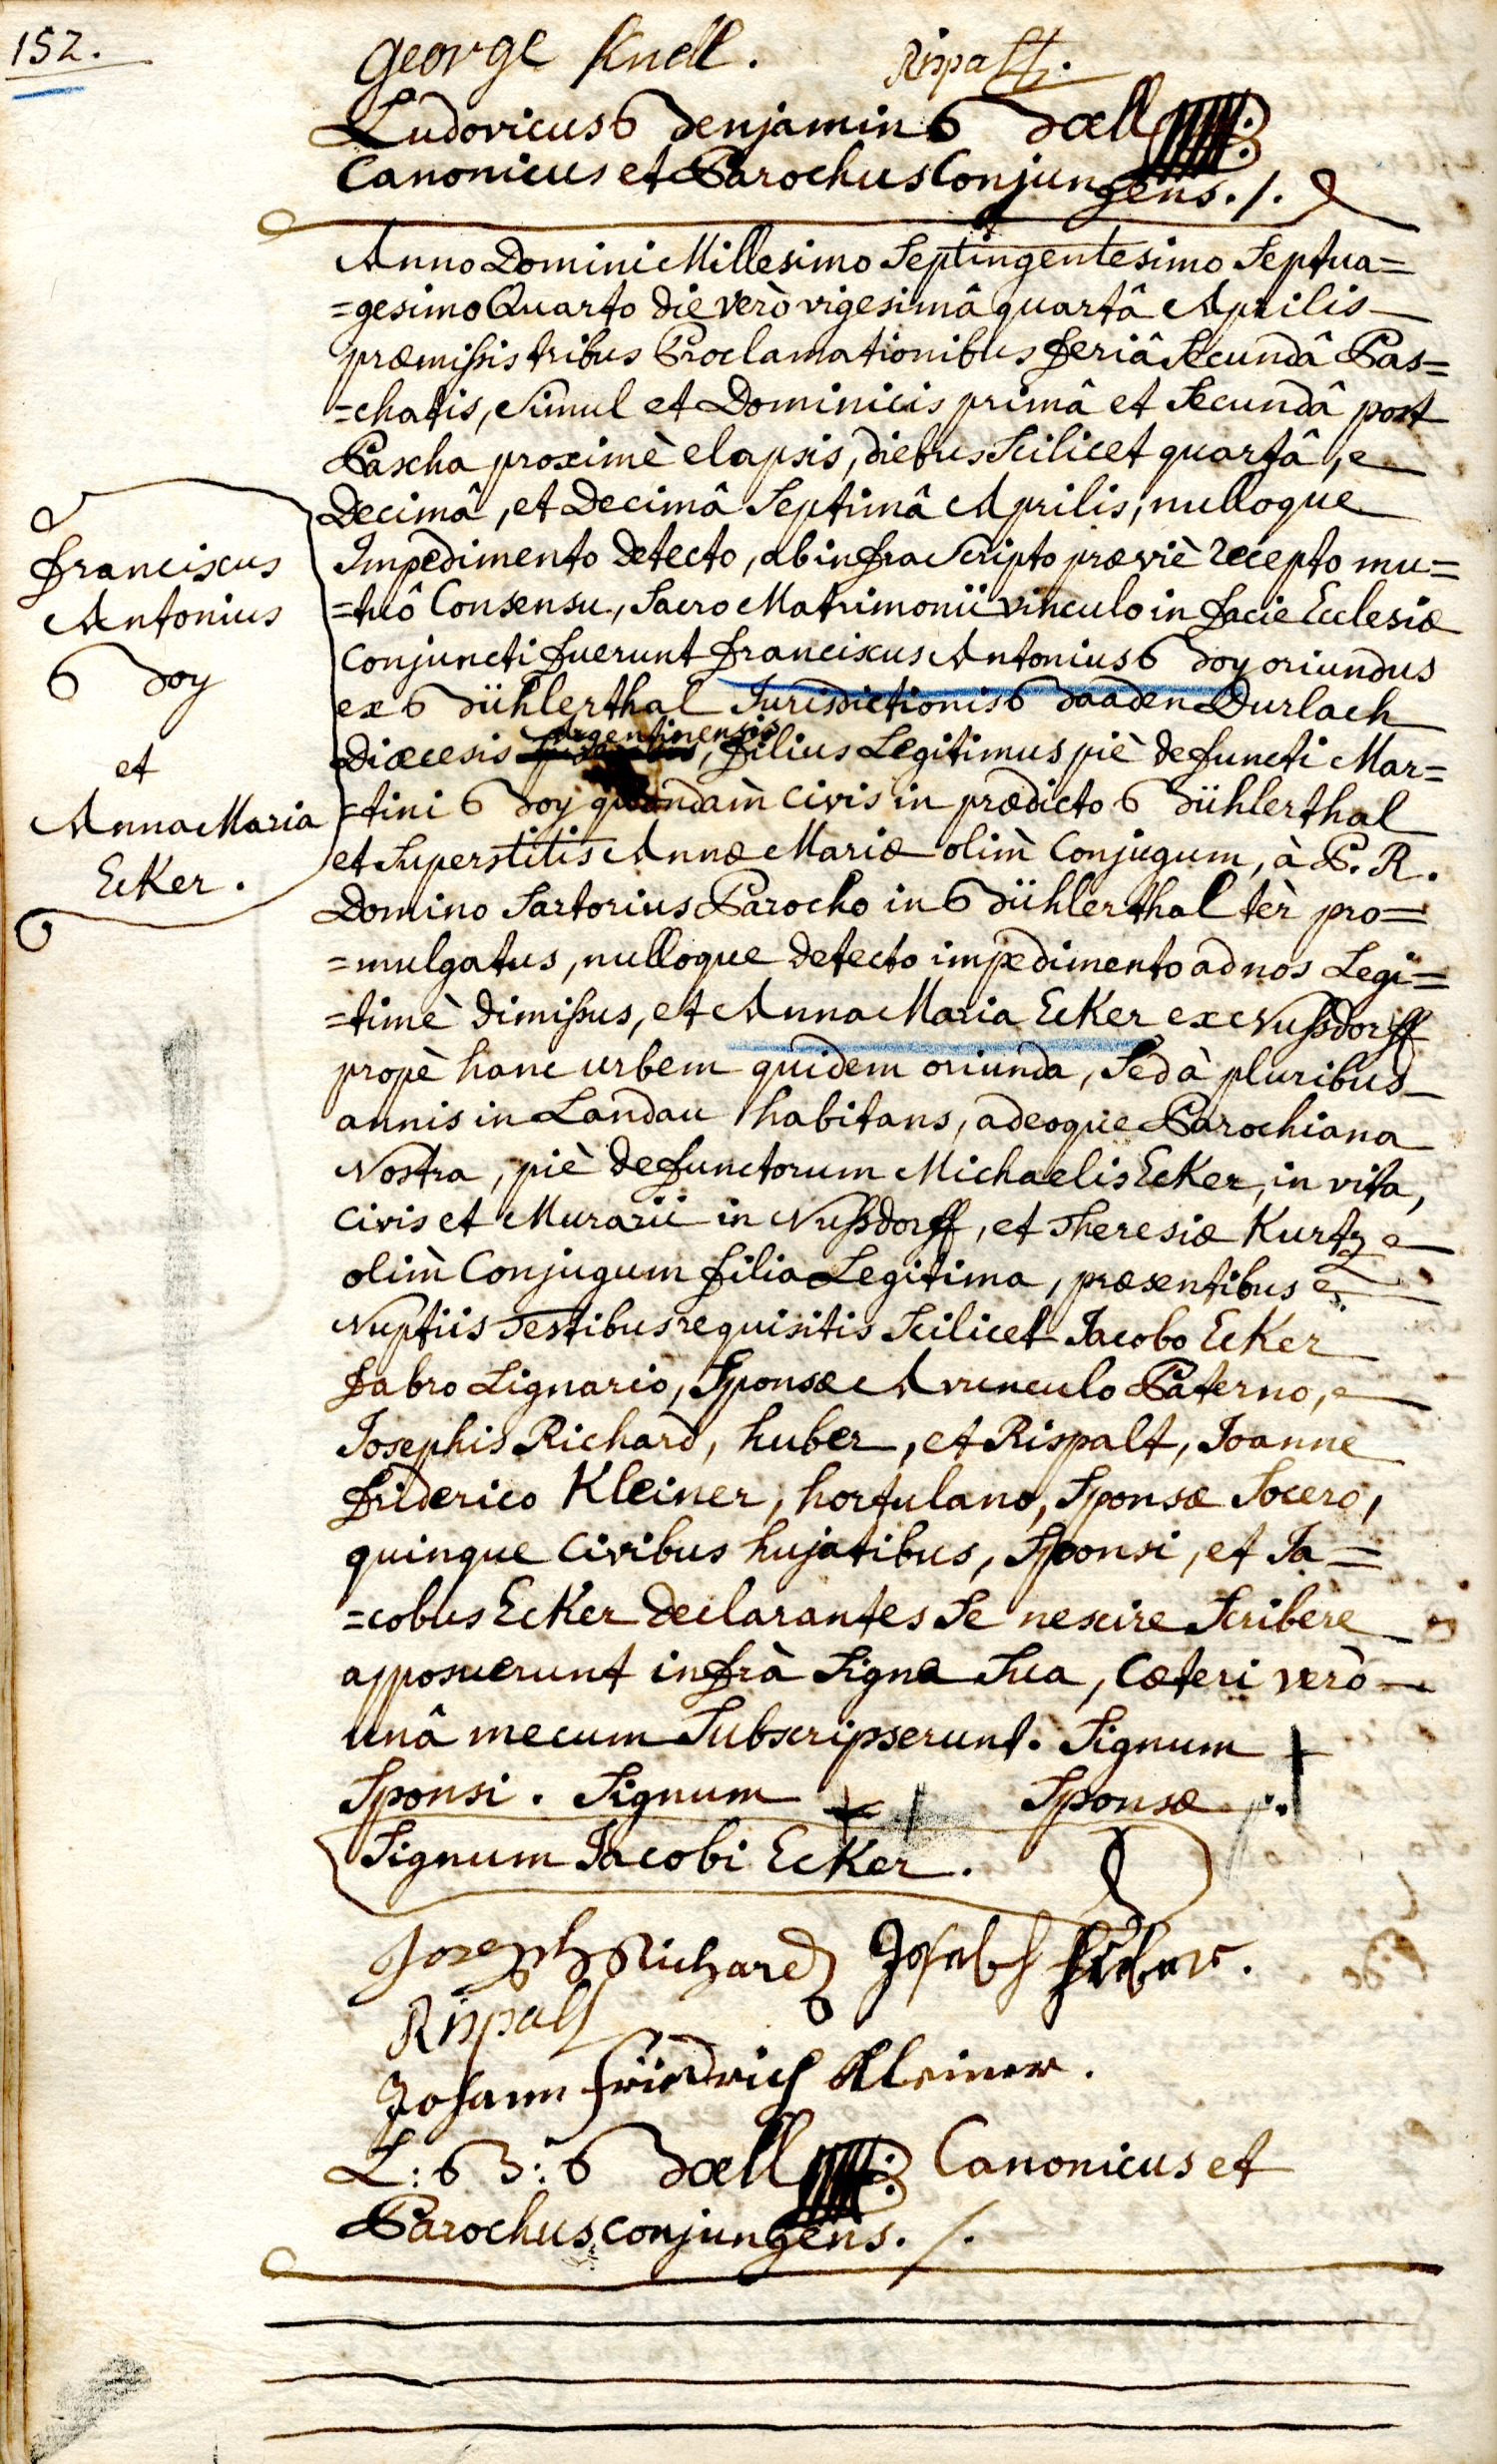 152.
George Knell. Rispalt.
Ludovicus Benjamin Boell
Canonicus et Parochus Conjungens ./.
Anno Domini Millesimo Septingentesimo Septua=
=gesimo Quarto die verò vigesimâ quartâ Aprilis
præmissis tribus Proclamationibus feriâ Secundâ Pas=
=chatis, Simul et Dominicis primâ et Secundâ post
Pascha proximè elapsis, diebus Scilicet quartâ,
Decimâ, et Decimâ Septimâ Aprilis, nulloque
Impedimento detecto, ab infra Scripto præviè recepto mu=
=tuô Consensu, Sacro Matrimonii vinculo in facie Ecclesiæ
Conjuncti fuerunt Franciscus Antonius Boy oriundus
ex Bühlerthal Jurisdictionis Baaden Durlach
Diœcesis Argentinensis, filius Legitimus piè defuncti Mar=
=tini Boy quondam civis in prædicto Bühlerthal
et Superstitis Annæ Mariæ olim Conjugum, à P. R.
Domino Sartorius Parocho in Bühlerthal tèr pro=
=mulgatus, nulloque detecto impedimento ad nos Legi=
=timè dimissus, et Anna Maria Ecker ex Nussdorff
propè hanc urbem quidem oriunda, Sed à pluribus
annis in Landau habitans, adeoque Parochiana
Nostra, piè defunctorum Michaelis Ecker, in vita,
Civis et Murarii in Nussdorff, et Theresiæ Kurtz
olim Conjugum filia Legitima, præsentibus
Nuptiis Testibus requisitis Scilicet Jacobo Ecker
fabro Lignario, Sponsæ Avunculo Paterno,
Josephis Richard, huber, et Rispalt, Joanne
friderico Kleiner, hortulano, Sponsæ Socero,
quinque Civibus hujatibus, Sponsi, et Ja=
=cobus Ecker declarantes Se nescire Scribere
apposuerunt infrà Signa Sua, Cæteri verò
unâ mecum Subscripserunt. Signum +
Sponsi. Signum + Sponsæ.
Signum Jacobi Ecker.
Joseph Richard Joseph Huber.
Rispalt
Johann Friedrich Kleiner.
L: B: Boell Canonicus et
Parochus conjungens. /.
Franciscus
Antonius
Boy
et
Anna Maria
Ecker.